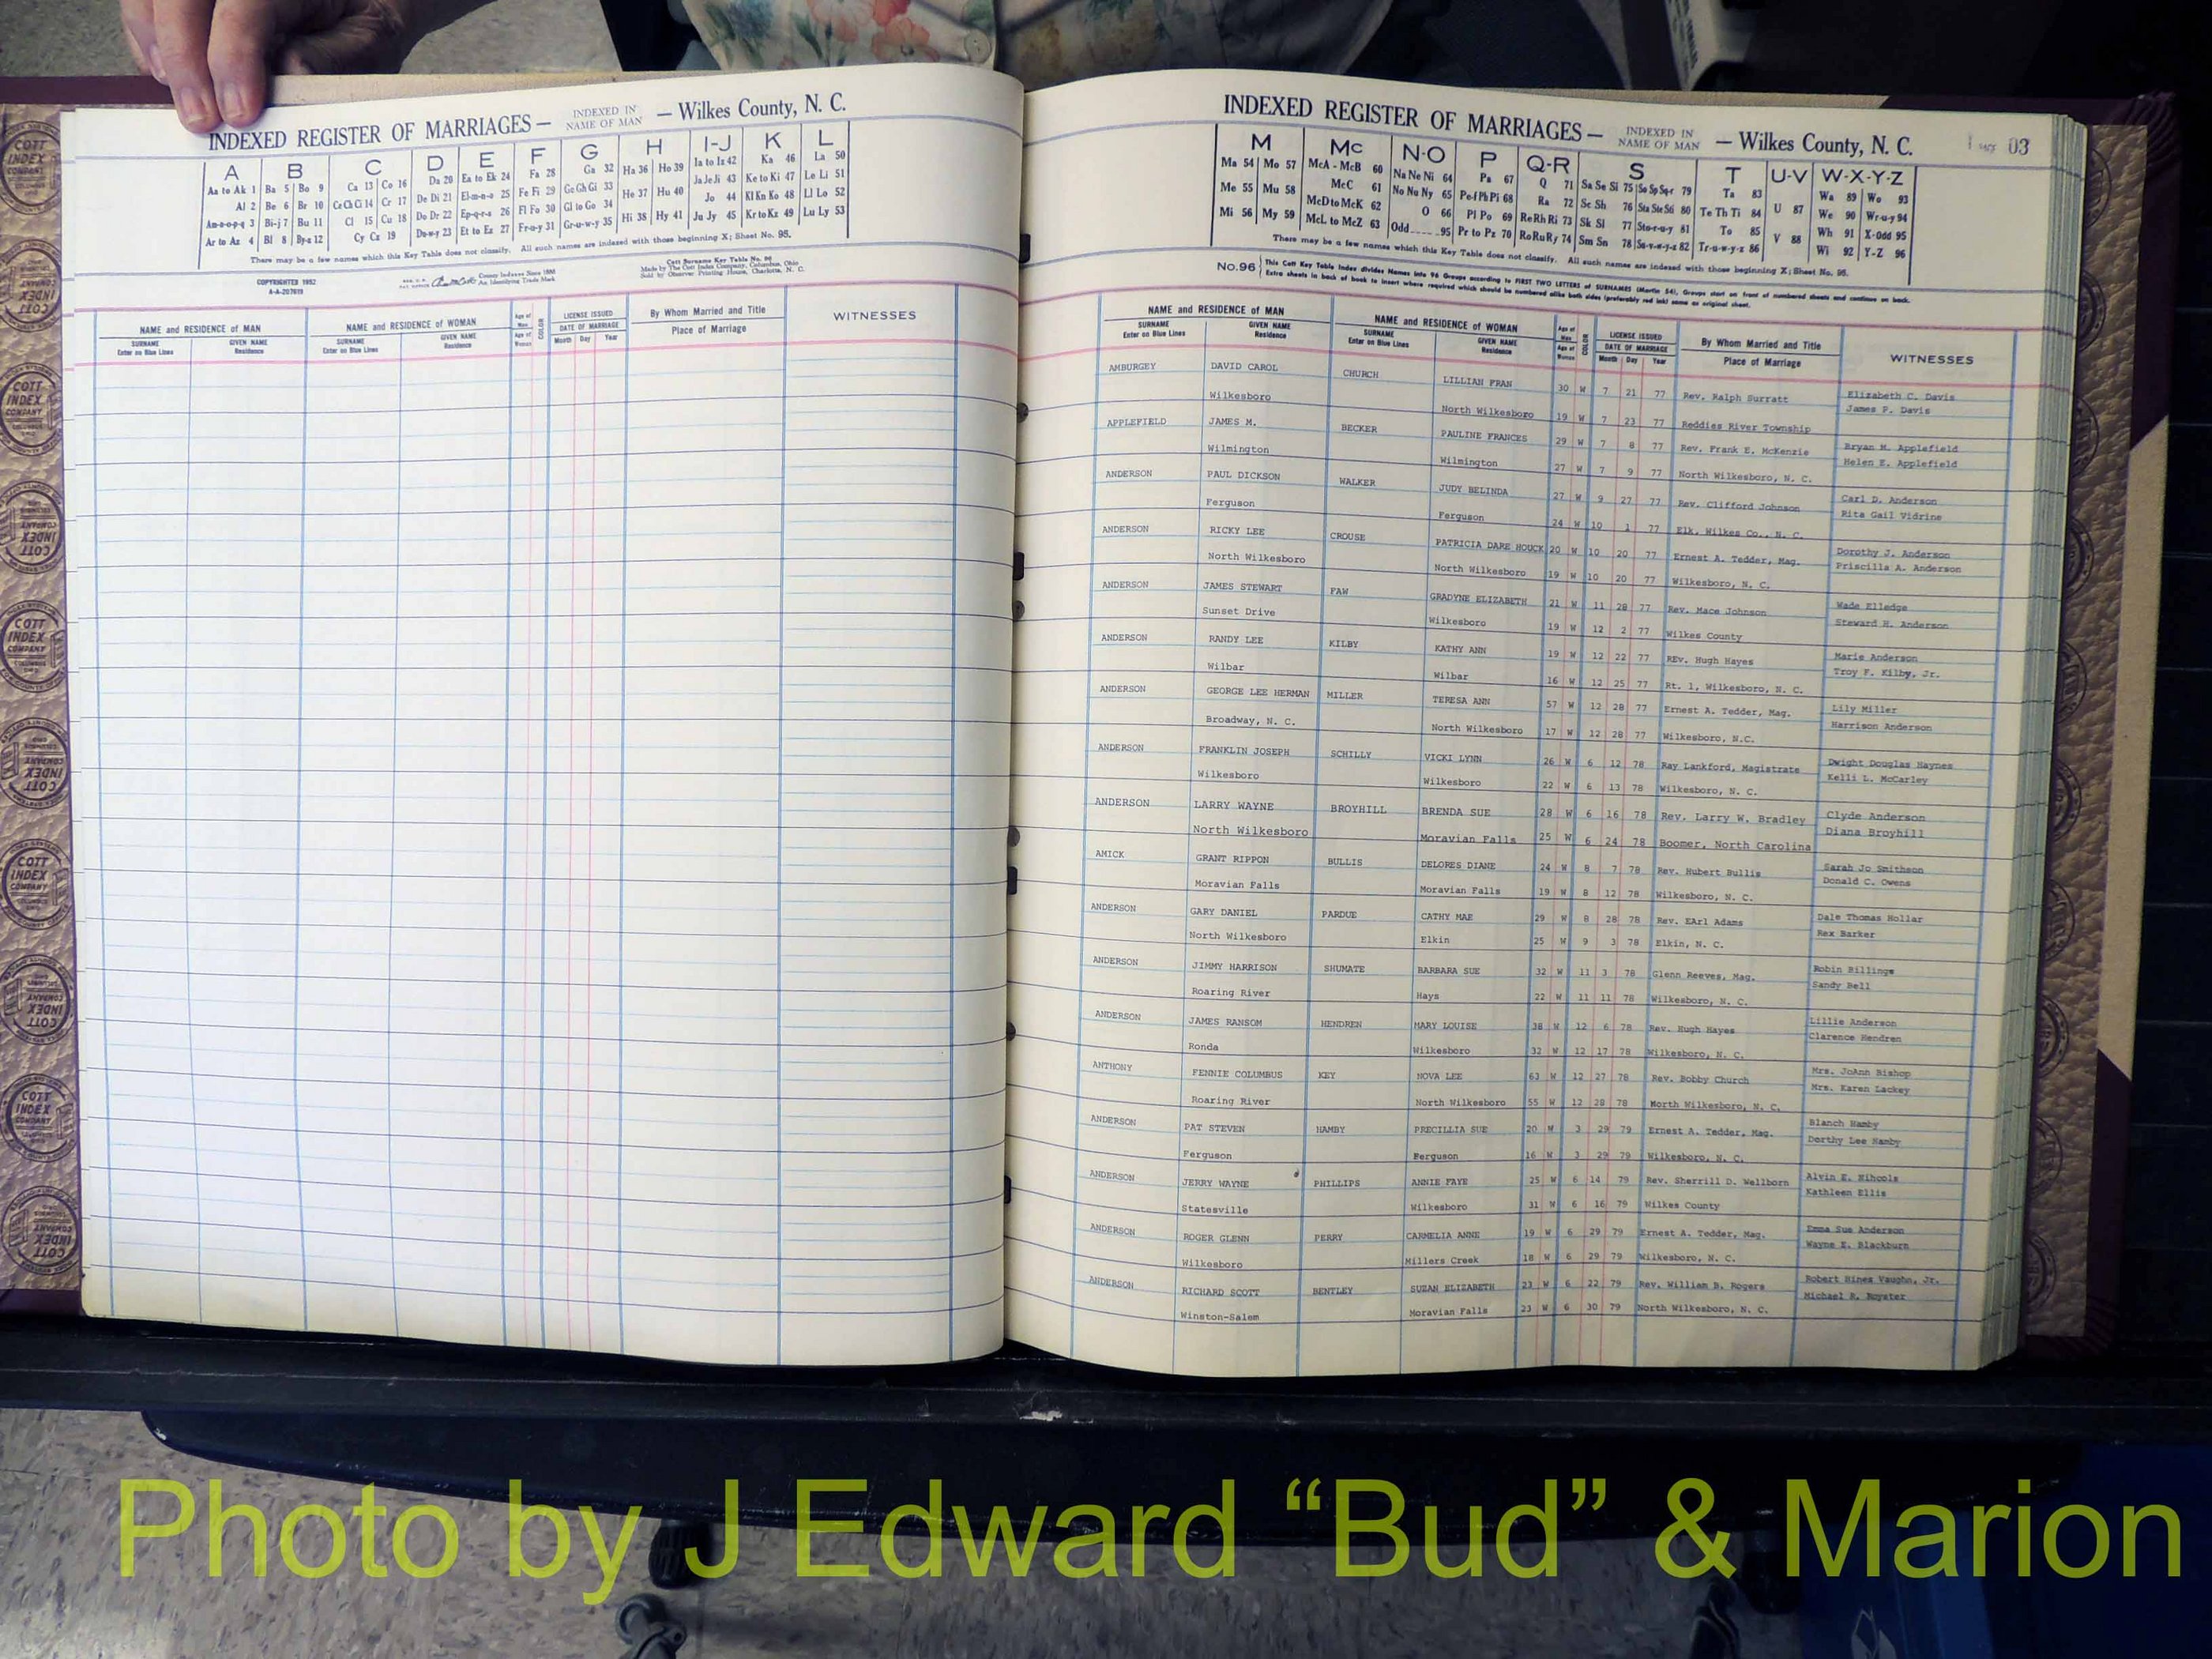 INDEXED REGISTER OF MARRIAGES — INDEXED IN NAME OF MAN — Wilkes County, N. C.
A B C D E F G H I-J K L
Aa to Ak 1 Ba 5 Bo 9 Ca 13 Co 16 Da 20 Ea to Ek 24 Fa 28 Ga 32 Ha 36 Ho 39 Ia to Iz 42 Ka 46 La 50
Al 2 Be 6 Br 10 Ce Ch Ci 14 Cr 17 De Di 21 El-m-n-o 25 Fe Fi 29 Ge Gh Gi 33 He 37 Hu 40 Ja Je Ji 43 Ke to Ki 47 Le Li 51
Am-n-o-p-q 3 Bi-j 7 Bu 11 Cl 15 Cu 18 Do Dr 22 Ep-q-r-s 26 Fl Fo 30 Gl to Go 34 Hi 38 Hy 41 Jo 44 Kl Kn Ko 48 Ll Lo 52
Ar to Az 4 Bl 8 By-z 12 Cy Cz 19 Du-w-y 23 Et to Ez 27 Fr-u-y 31 Gr-u-w-y 35 Ju Jy 45 Kr to Kz 49 Lu Ly 53
There may be a few names which this Key Table does not classify. All such names are indexed with those beginning X; Sheet No. 95.
COPYRIGHTED 1952
A-A-207619
County Indexes Since 1888
An Identifying Trade Mark
Cott Surname Key Table No. 96
Made by The Cott Index Company, Columbus, Ohio
Sold by Observer Printing House, Charlotte, N. C.
NAME and RESIDENCE of MAN NAME and RESIDENCE of WOMAN Age of Man COLOR LICENSE ISSUED By Whom Married and Title WITNESSES
SURNAME GIVEN NAME SURNAME GIVEN NAME Age of Woman DATE OF MARRIAGE Place of Marriage
Enter on Blue Lines Residence Enter on Blue Lines Residence Month Day Year
INDEXED REGISTER OF MARRIAGES — INDEXED IN NAME OF MAN — Wilkes County, N. C.
03
M Mc N-O P Q-R S T U-V W-X-Y-Z
Ma 54 Mo 57 McA - McB 60 Na Ne Ni 64 Pa 67 Q 71 Sa Se Si 75 So Sp Sq-r 79 Ta 83 U 87 Wa 89 Wo 93
Me 55 Mu 58 McC 61 No Nu Ny 65 Pe-f Ph Pi 68 Ra 72 Sc Sh 76 Sta Ste Sti 80 Te Th Ti 84 We 90 Wr-u-y 94
Mi 56 My 59 McD to McK 62 O 66 Pl Po 69 Re Rh Ri 73 Sk Sl 77 Sto-r-u-y 81 To 85 V 88 Wh 91 X-Odd 95
McL to McZ 63 Odd 95 Pr to Pz 70 Ro Ru Ry 74 Sm Sn 78 Su-v-w-y-z 82 Tr-u-w-y-z 86 Wi 92 Y-Z 96
There may be a few names which this Key Table does not classify. All such names are indexed with those beginning X; Sheet No. 95.
No. 96 This Cott Key Table Index divides Names into 96 Groups according to FIRST TWO LETTERS of SURNAMES (Martin 54), Groups start on front of numbered sheets and continue on back.
Extra sheets in back of book to insert where required which should be numbered alike both sides (preferably red ink) same as original sheet.
NAME and RESIDENCE of MAN NAME and RESIDENCE of WOMAN Age of Man COLOR LICENSE ISSUED By Whom Married and Title WITNESSES
SURNAME GIVEN NAME SURNAME GIVEN NAME Age of Woman DATE OF MARRIAGE Place of Marriage
Enter on Blue Lines Residence Enter on Blue Lines Residence Month Day Year
AMBURGEY DAVID CAROL CHURCH LILLIAN FRAN 30 W 7 21 77 Rev. Ralph Surratt Elizabeth C. Davis
Wilkesboro North Wilkesboro 19 W 7 23 77 Reddies River Township James P. Davis
APPLEFIELD JAMES M. BECKER PAULINE FRANCES 29 W 7 8 77 Rev. Frank E. McKenzie Bryan M. Applefield
Wilmington Wilmington 27 W 7 9 77 North Wilkesboro, N. C. Helen E. Applefield
ANDERSON PAUL DICKSON WALKER JUDY BELINDA 27 W 9 27 77 Rev. Clifford Johnson Carl D. Anderson
Ferguson Ferguson 24 W 10 1 77 Elk, Wilkes Co., N. C. Rita Gail Vidrine
ANDERSON RICKY LEE CROUSE PATRICIA DARE HOUCK 20 W 10 20 77 Ernest A. Tedder, Mag. Dorothy J. Anderson
North Wilkesboro North Wilkesboro 19 W 10 20 77 Wilkesboro, N. C. Priscilla A. Anderson
ANDERSON JAMES STEWART FAW GRADYNE ELIZABETH 21 W 11 28 77 Rev. Mace Johnson Wade Elledge
Sunset Drive Wilkesboro 19 W 12 2 77 Wilkes County Steward H. Anderson
ANDERSON RANDY LEE KILBY KATHY ANN 19 W 12 22 77 REv. Hugh Hayes Marie Anderson
Wilbar Wilbar 16 W 12 25 77 Rt. 1, Wilkesboro, N. C. Troy F. Kilby, Jr.
ANDERSON GEORGE LEE HERMAN MILLER TERESA ANN 57 W 12 28 77 Ernest A. Tedder, Mag. Lily Miller
Broadway, N. C. North Wilkesboro 17 W 12 28 77 Wilkesboro, N.C. Harrison Anderson
ANDERSON FRANKLIN JOSEPH SCHILLY VICKI LYNN 26 W 6 12 78 Ray Lankford, Magistrate Dwight Douglas Haynes
Wilkesboro Wilkesboro 22 W 6 13 78 Wilkesboro, N. C. Kelli L. McCarley
ANDERSON LARRY WAYNE BROYHILL BRENDA SUE 28 W 6 16 78 Rev. Larry W. Bradley Clyde Anderson
North Wilkesboro Moravian Falls 25 W 6 24 78 Boomer, North Carolina Diana Broyhill
AMICK GRANT RIPPON BULLIS DELORES DIANE 24 W 8 7 78 Rev. Hubert Bullis Sarah Jo Smithson
Moravian Falls Moravian Falls 19 W 8 12 78 Wilkesboro, N. C. Donald C. Owens
ANDERSON GARY DANIEL PARDUE CATHY MAE 29 W 8 28 78 Rev. EArl Adams Dale Thomas Hollar
North Wilkesboro Elkin 25 W 9 3 78 Elkin, N. C. Rex Barker
ANDERSON JIMMY HARRISON SHUMATE BARBARA SUE 32 W 11 3 78 Glenn Reeves, Mag. Robin Billings
Roaring River Hays 22 W 11 11 78 Wilkesboro, N. C. Sandy Bell
ANDERSON JAMES RANSOM HENDREN MARY LOUISE 38 W 12 6 78 Rev. Hugh Hayes Lillie Anderson
Ronda Wilkesboro 32 W 12 17 78 Wilkesboro, N. C. Clarence Hendren
ANTHONY FENNIE COLUMBUS KEY NOVA LEE 63 W 12 27 78 Rev. Bobby Church Mrs. JoAnn Bishop
Roaring River North Wilkesboro 55 W 12 28 78 North Wilkesboro, N. C. Mrs. Karen Lackey
ANDERSON PAT STEVEN HAMBY PRECILLIA SUE 20 W 3 29 79 Ernest A. Tedder, Mag. Blanch Hamby
Ferguson Ferguson 16 W 3 29 79 Wilkesboro, N. C. Dorthy Lee Hamby
ANDERSON JERRY WAYNE PHILLIPS ANNIE FAYE 25 W 6 14 79 Rev. Sherrill D. Wellborn Alvin E. Nihcols
Statesville Wilkesboro 31 W 6 16 79 Wilkes County Kathleen Ellis
ANDERSON ROGER GLENN PERRY CARMELIA ANNE 19 W 6 29 79 Ernest A. Tedder, Mag. Emma Sue Anderson
Wilkesboro Millers Creek 18 W 6 29 79 Wilkesboro, N. C. Wayne E. Blackburn
ANDERSON RICHARD SCOTT BENTLEY SUZAN ELIZABETH 23 W 6 22 79 Rev. William B. Rogers Robert Hines Vaughn, Jr.
Winston-Salem Moravian Falls 23 W 6 30 79 North Wilkesboro, N. C. Michael R. Royster
Photo by J Edward “Bud” & Marion